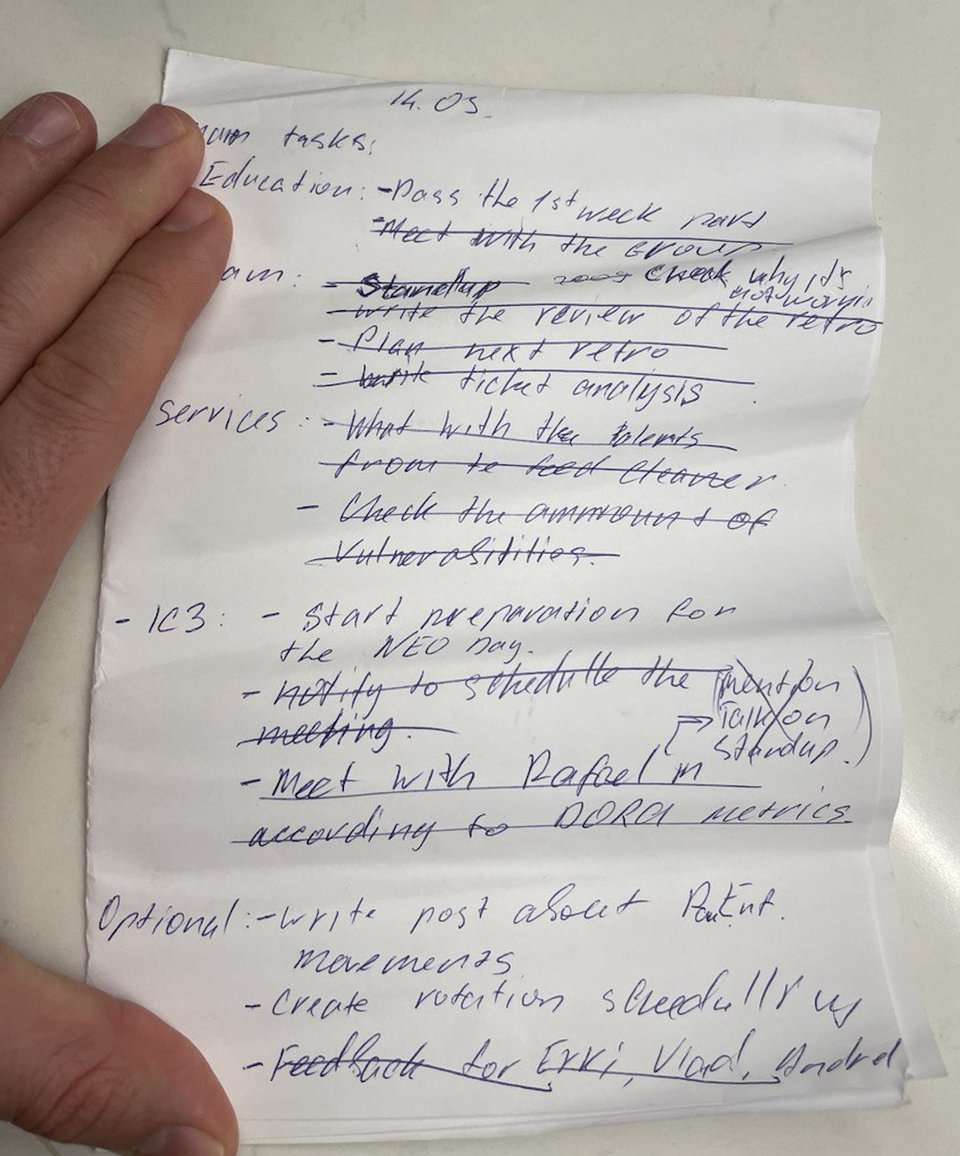 14.03.
main tasks:
Education: - Pass the 1st week part
- Meet with the group
am: - Standup check why it's
not workin
- write the review of the retro
- Plan next retro
- write ticket analysis
services: - What with the talents
from te feed cleaner.
- Check the ammount of
vulnerabitities.
- IC3: - Start preparation for
the NEO Day.
- notify to schedulle the (mention
meeting. Talk on
standup.)
- Meet with Rafael m
according to DORA metrics
Optional: - write post about Ent.
movements
- Create rotation
- Feedback for Erki, Vlad, Andrei